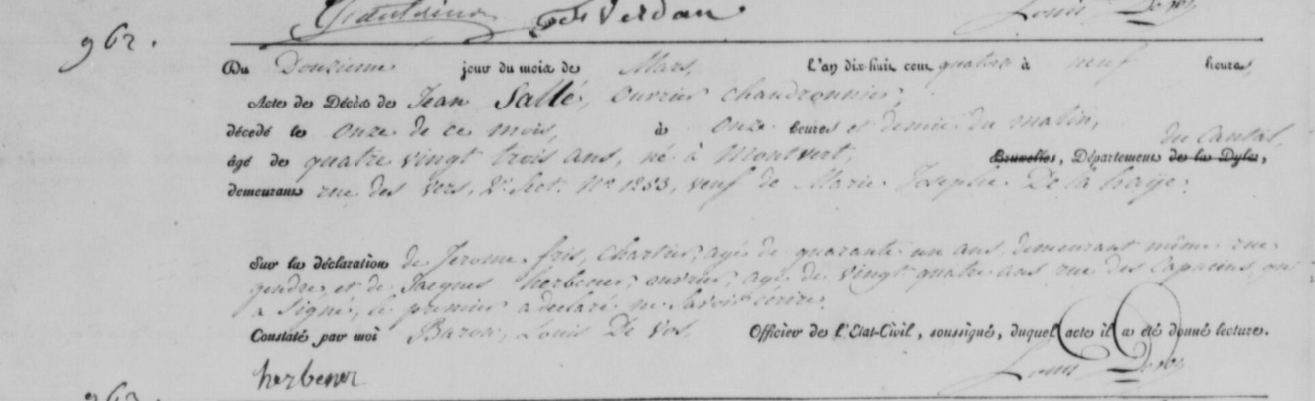 Verdan Louis De Vos
962.
Du Douzieme jour du mois de Mars, l'an dix-huit cent quatre à neuf heures,
Acte de Décès de Jean Sallé, ouvrier chaudronnier,
décédé le onze de ce mois, à onze heures et demie du matin,
du Cantal,
âgé de quatre vingt trois ans, né à Montvert, Bruxelles, Département de la Dyle,
demeurant rue des vers, 2e Sect. No 1353, veuf de Marie Josephe De la haije.
Sur la déclaration de Jerome fris, Chartier, agé de quarante un ans, demeurant même rue
gendre, et de Jacques herbener, ouvrier, agé de vingt quatre ans rue des Capucins, qui
a signé, le premier a declaré ne savoir écrire.
Constaté par moi Baron, Louis De Vos, Officier de l'Etat-Civil, soussigné, duquel acte il a été donné lecture.
herbener Louis De Vos
963.